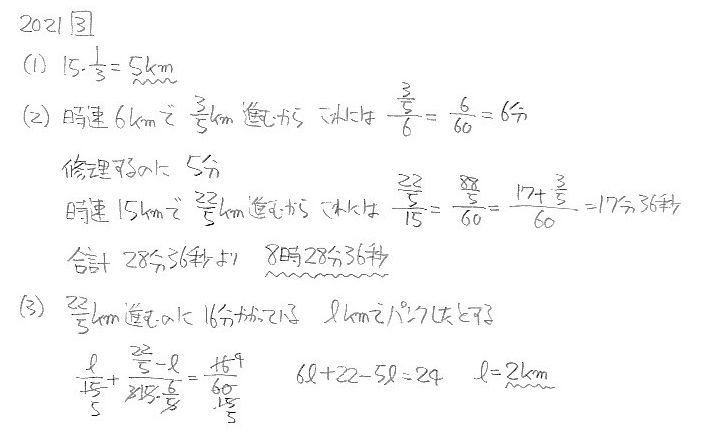 2021 3
(1) 15・1/3 = 5km
(2) 時速6kmで 3/5km 進むから これには (3/5)/6 = 6/60 = 6分
修理するのに 5分
時速15kmで 22/5km進むから これには (22/5)/15 = (88/5)/60 = (17+3/5)/60 = 17分36秒
合計 28分36秒より 8時28分36秒
(3) 22/5km進むのに 16分かかっている lkmでパンクしたとする
l/15 + (22/5-l)/ = 16/60 6l+22-5l=24 l=2km